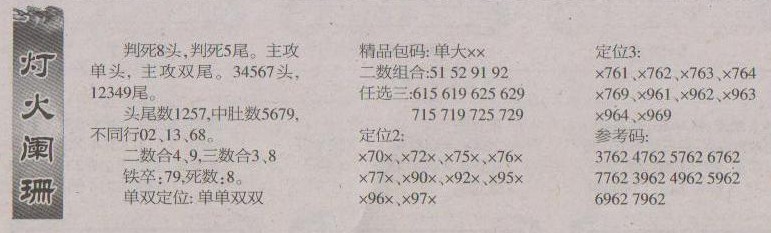 灯火阑珊
判死8头,判死5尾。主攻
单头,主攻双尾。34567头,
12349尾。
头尾数1257,中肚数5679,
不同行02、13、68。
二数合4、9,三数合3、8
铁卒:79,死数:8。
单双定位:单单双双
精品包码:单大××
二数组合:51 52 91 92
任选三:615 619 625 629
715 719 725 729
定位2:
×70×、×72×、×75×、×76×
×77×、×90×、×92×、×95×
×96×、×97×
定位3:
×761、×762、×763、×764
×769、×961、×962、×963
×964、×969
参考码:
3762 4762 5762 6762
7762 3962 4962 5962
6962 7962